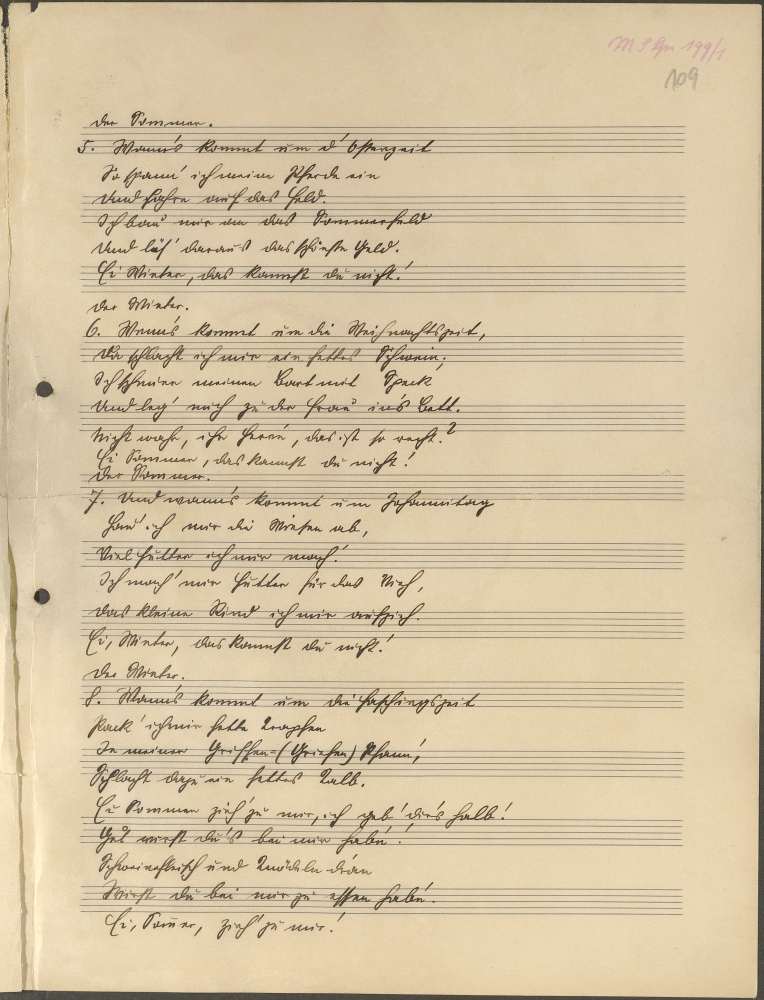 109
Der Sommer.
5. Wann's kommt um d' Osterzeit
So spann' ich meine Pferde ein
Und fahre auf das Feld.
Ich bau' mir an das Sommerfeld
Und lös' daraus das schönste Geld.
Ei Winter, das kannst du nicht!
Der Winter.
6. Wann's kommt um die Weihnachtszeit,
Da schlacht ich mir ein fettes Schwein;
Ich schmiere meinen Bart mit Speck
Und leg' mich zu der Frau in's Bett.
Nicht wahr, ihr Herrn, das ist so recht?
Ei Sommer, das kannst du nicht!
Der Sommer.
7. Und wann's kommt um Johannitag
Hau' ich mir die Wiesen ab,
Viel Futter ich mir mach'.
Ich mach' mir Futter für das Vieh,
Das kleine Rind ich mir aufzieh.
Ei, Winter, das kannst du nicht!
Der Winter.
8. Wann's kommt um die Faschingszeit
Back' ich mir fette Krapfen
In meiner (Griefen) Pfann',
Schlacht dazu ein fettes Kalb.
Ei Sommer zieh' zu mir, ich geb' dir's halb!
Gut wirst du's bei mir habn'!
Schweinefleisch und Knödeln dran
Wirst du bei mir zu essen habn'.
Ei, Som̄er, zieh' zu mir!